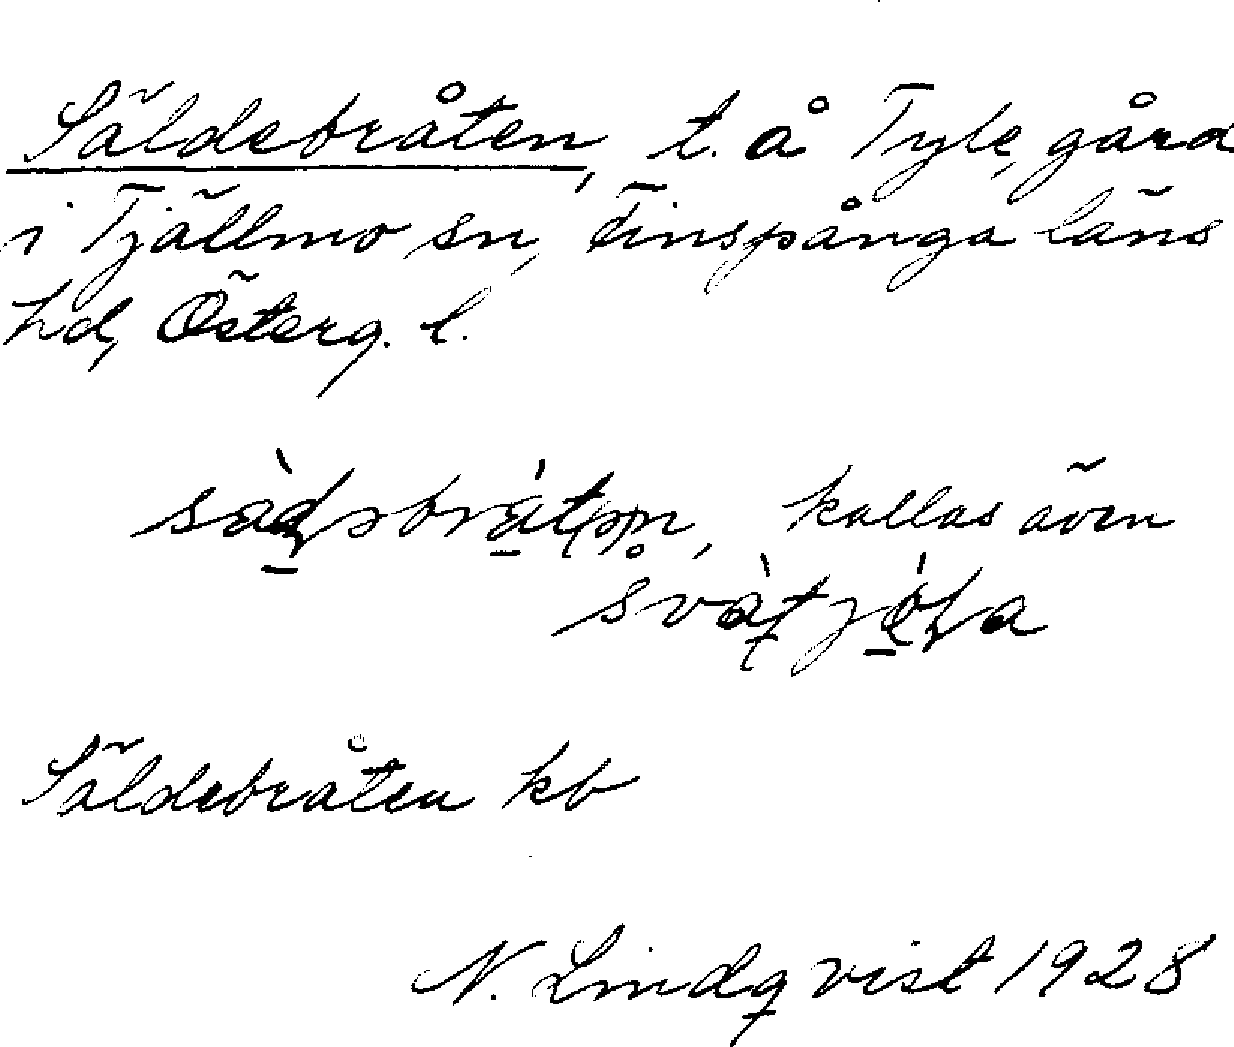 Säldebråten, t. å Tyle, gård
i Tjällmo sn, Finspånga läns
hd, Österg. l.
kallas även
Säldebråten kb
N. Lindqvist 1928